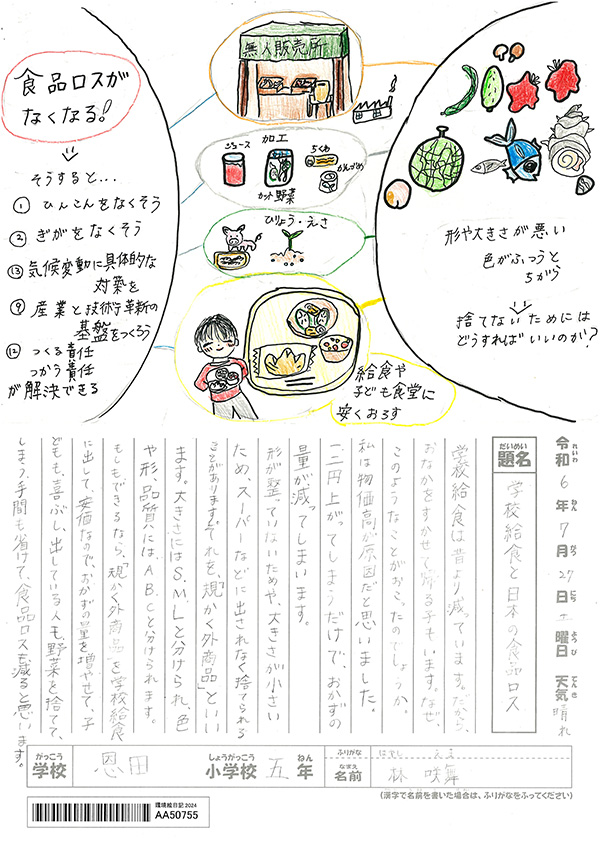 食品ロスが
なくなる!
そうすると…
① ひんこんをなくそう
② きがをなくそう
⑬ 気候変動に具体的な
対策を
⑨ 産業と技術革新の
基盤をつくろう
⑫ つくる責任
つかう責任
が解決できる
無人販売所
加工
ジュース
カット野菜
ちくわ
かんづめ
ひりょう・えさ
給食や
子ども食堂に
安くおろす
形や大きさが悪い
色がふつうと
ちがう
捨てないためには
どうすればいいのか?
令和6年7月27日土曜日 天気 晴れ
れいわ ねん がつ にち ようび てんき
だいめい
題名
学校給食と日本の食品ロス
学校給食は昔より減っています。だから、
おなかをすかせて帰る子もいます。なぜ、
このようなことがおこったのでしょうか。
私は物価高が原因だと思いました。
一、二円上がってしまうだけで、おかずの
量が減ってしまいます。
形が整っていないためや、大きさが小さい
ため、スーパーなどに出されなく捨てられる
ことがあります。それを、「規かく外商品」といい
ます。大きさにはS、M、Lと分けられ、色
や形、品質には、A、B、Cと分けられます。
もしもできるなら、「規かく外商品」を学校給食
に出して、安価なので、おかずの量を増やせて、子
どもも、喜ぶし、出している人も、野菜を捨てて、
しまう手間も省けて、食品ロスを減ると思います。
がっこう しょうがっこう ねん
学校 恩田 小学校 五 年
ふりがな はやし えま
なまえ
名前 林 咲舞
(漢字で名前を書いた場合は、ふりがなをふってください)
環境絵日記2024
AA50755